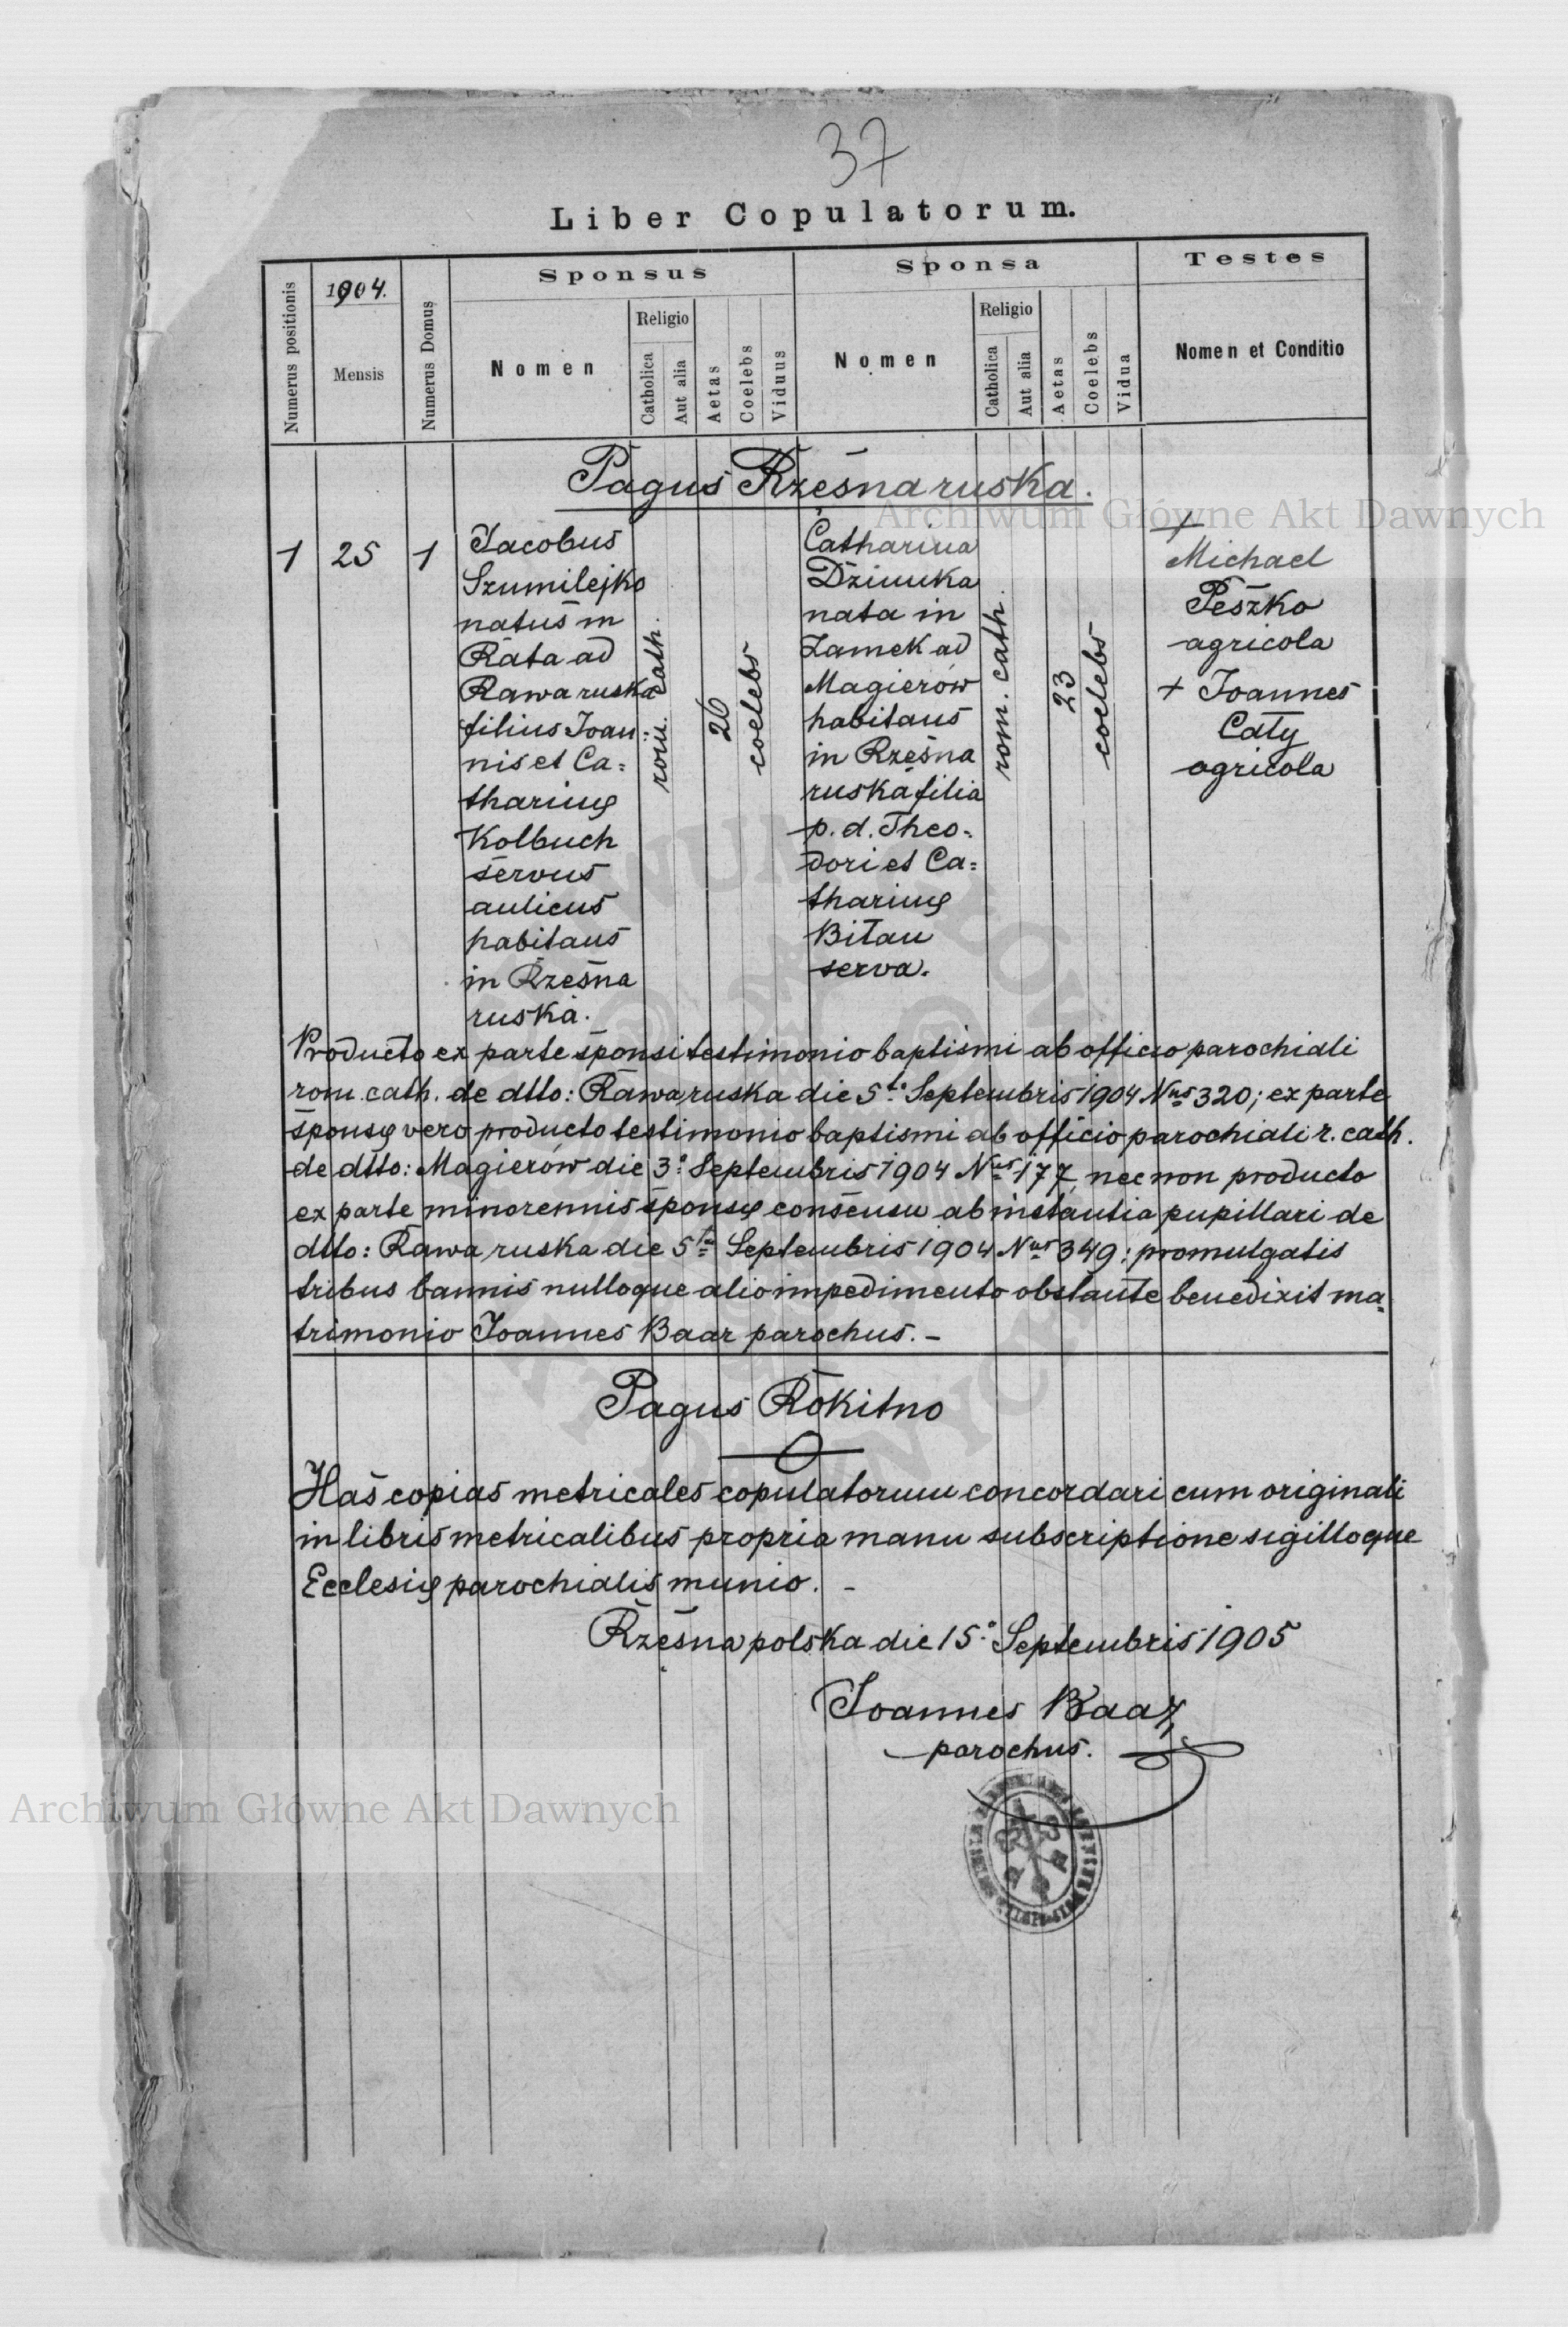 37
Liber Copulatorum.
Numerus positionis
1904.
Mensis
Numerus Domus
Sponsus
Nomen
Religio
Catholica
Aut alia
Aetas
Coelebs
Viduus
Sponsa
Nomen
Religio
Catholica
Aut alia
Aetas
Coelebs
Vidua
Testes
Nomen et Conditio
Pagus Rzęsna ruska.
1
25
1
Jacobus
Szumilejko
natus in
Rata ad
Rawa ruska
filius Joan=
nis et Ca=
tharinę
Kolbuch
servus
aulicus
habitans
in Rzęsna
ruska.
rom. cath.
26
coelebs
Catharina
Dziunka
nata in
Zamek ad
Magierów
habitans
in Rzęsna
ruska filia
p. d. Theo=
dori et Ca=
tharinę
Bitan
serva.
rom. cath.
23
coelebs
+
Michael
Peszko
agricola
+ Joannes
Caty
agricola
Producto ex parte sponsi testimonio baptismi ab officio parochiali
rom. cath. de dtto: Rawa ruska die 5to Septembris 1904 Nus 320; ex parte
sponsę vero producto testimonio baptismi ab officio parochiali r. cath.
de dtto: Magierów die 3o Septembris 1904 Nus 177, nec non producto
ex parte minorennis sponsę consensu ab instantia pupillari de
dtto: Rawa ruska die 5ta Septembris 1904 Nus 349: promulgatis
tribus bannis nulloque alio impedimento obstante benedixit ma=
trimonio Joannes Baar parochus. –
Pagus Rokitno
Has copias metricales copulatorum concordari cum originali
in libris metricalibus propria manu subscriptione sigilloque
Ecclesię parochialis munio. –
Rzęsna polska die 15o Septembris 1905
Joannes Baar
parochus.
Archiwum Główne Akt Dawnych
Archiwum Główne Akt Dawnych